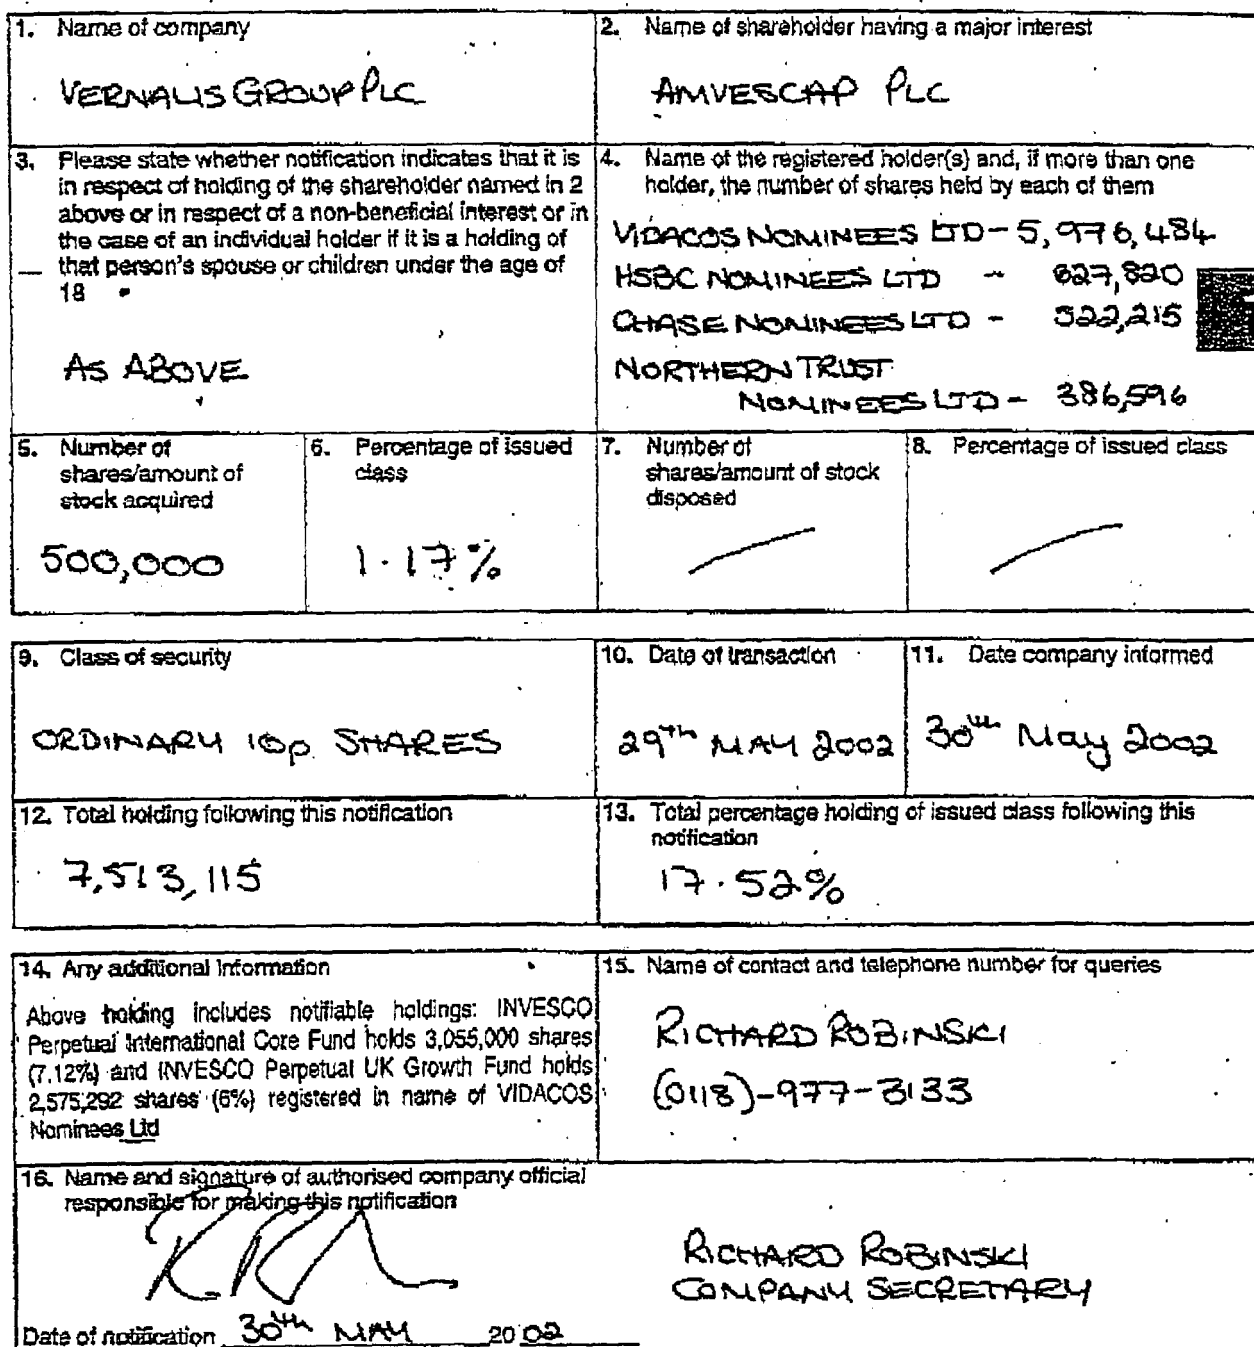 1. Name of company
VERNALIS GROUP PLC
2. Name of shareholder having a major interest
AMVESCAP PLC
3. Please state whether notification indicates that it is
in respect of holding of the shareholder named in 2
above or in respect of a non-beneficial interest or in
the case of an individual holder if it is a holding of
that person's spouse or children under the age of
18
AS ABOVE
4. Name of the registered holder(s) and, if more than one
holder, the number of shares held by each of them
VIDACOS NOMINEES LTD - 5,976,484
HSBC NOMINEES LTD - 827,820
CHASE NOMINEES LTD - 322,215
NORTHERN TRUST
NOMINEES LTD - 386,596
5. Number of
shares/amount of
stock acquired
500,000
6. Percentage of issued
class
1.17%
7. Number of
shares/amount of stock
disposed
8. Percentage of issued class
9. Class of security
ORDINARY 10p SHARES
10. Date of transaction
29th MAY 2002
11. Date company informed
30th May 2002
12. Total holding following this notification
7,513,115
13. Total percentage holding of issued class following this
notification
17.52%
14. Any additional information
Above holding includes notifiable holdings: INVESCO
Perpetual International Core Fund holds 3,055,000 shares
(7.12%) and INVESCO Perpetual UK Growth Fund holds
2,575,292 shares (6%) registered in name of VIDACOS
Nominees Ltd
15. Name of contact and telephone number for queries
RICHARD ROBINSKI
(0118)-977-3133
16. Name and signature of authorised company official
responsible for making this notification
RICHARD ROBINSKI
COMPANY SECRETARY
Date of notification 30th MAY 2002